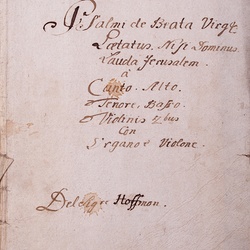 Psalmi de Beata Virg:
Lætatus. Nisi Dominus.
Lauda Jerusalem.
à
Canto. Alto.
Tenore. Basso.
Violinis 2bus
Con
Organo è Violone.
Del Sigre Hoffman.